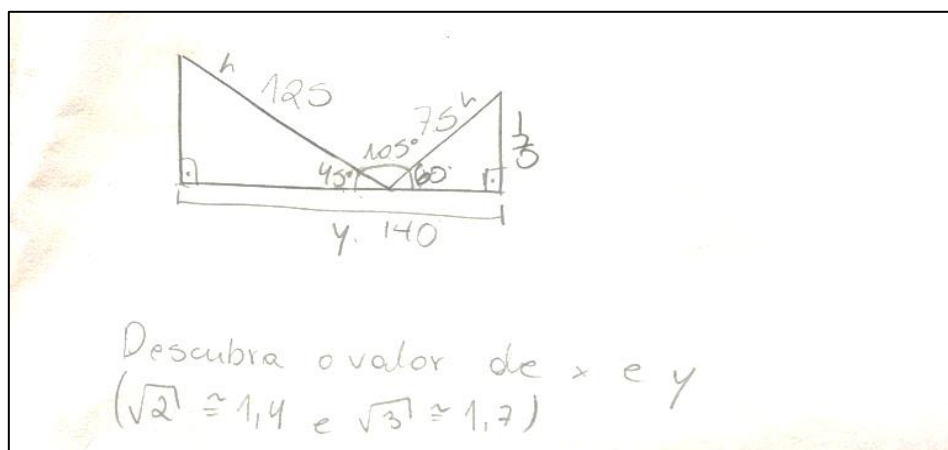 h
125
75 h
105°
45°
60°
y. 140
Descubra o valor de x e y
(√2 ≅ 1,4 e √3 ≅ 1,7)